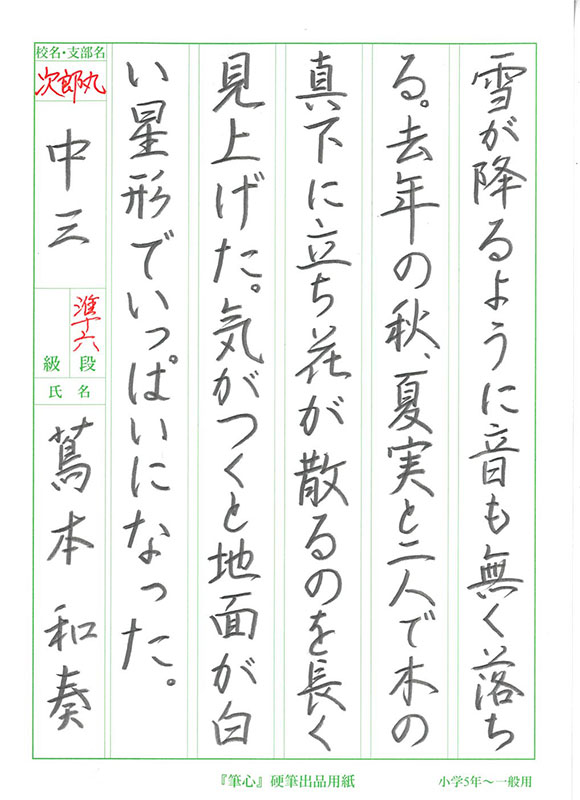 雪が降るように音も無く落ち
る。去年の秋、夏実と二人で木の
真下に立ち花が散るのを長く
見上げた。気がつくと地面が白
い星形でいっぱいになった。
校名・支部名
次郎丸
中三
準十六
段
級
氏名
蔦本 和奏
『筆心』硬筆出品用紙
小学5年〜一般用